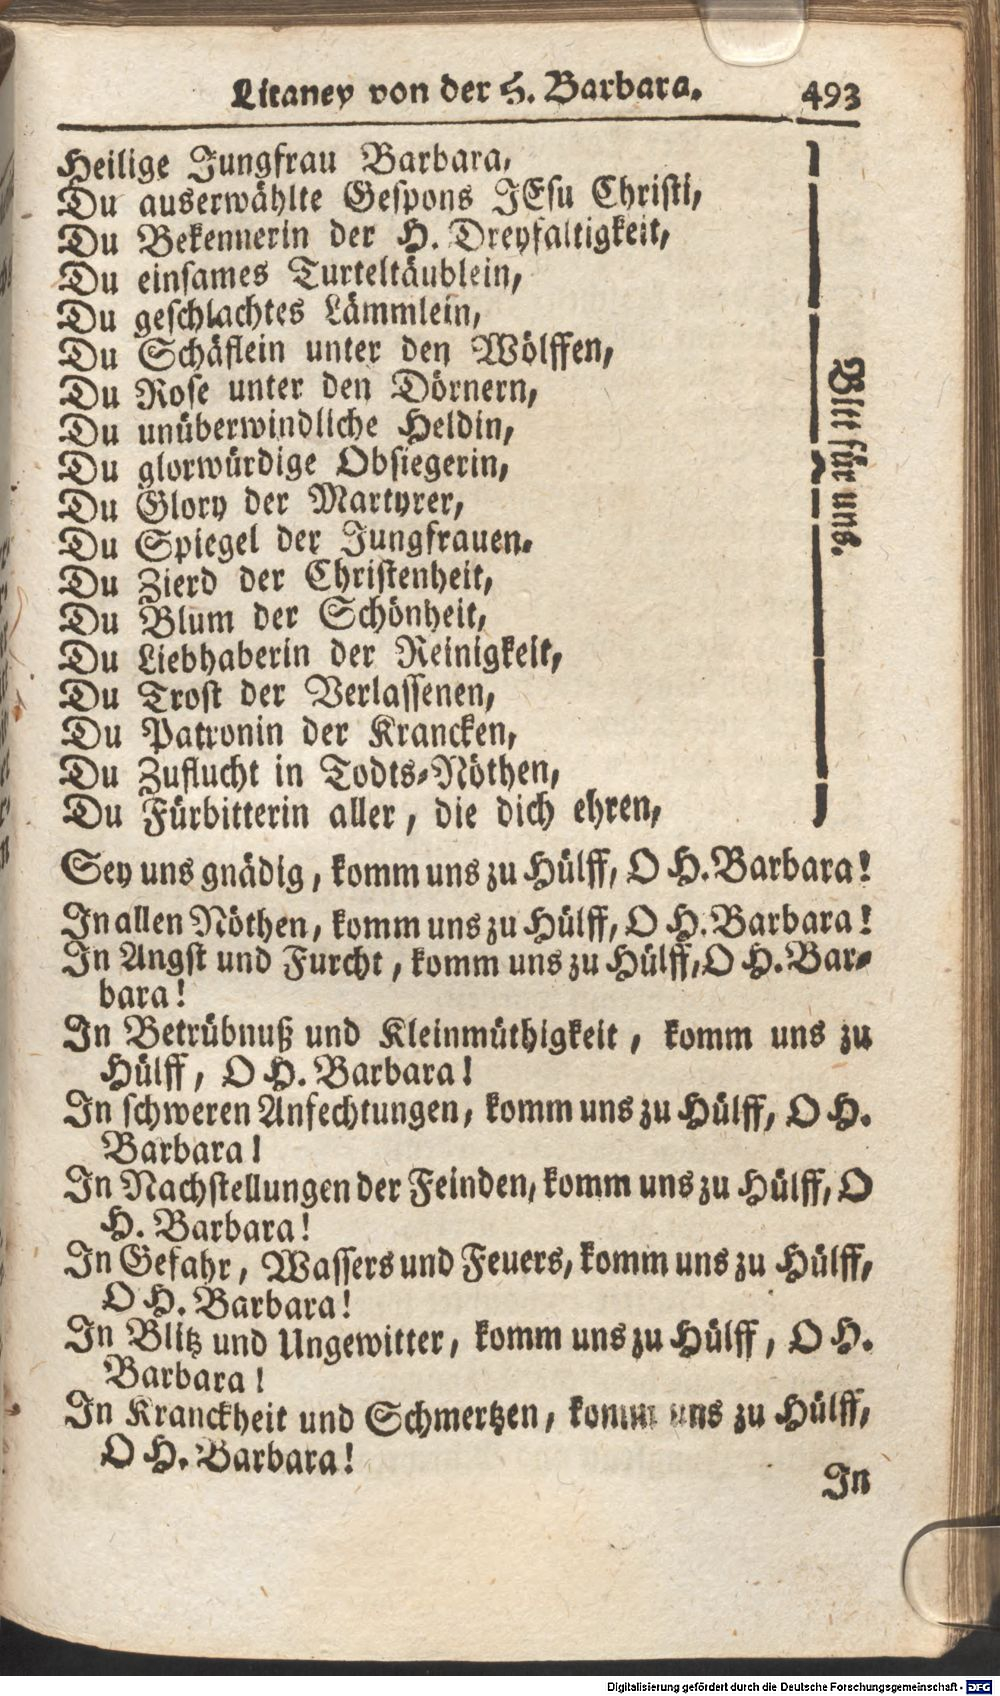 Litaney von der H. Barbara. 493
Heilige Jungfrau Barbara,
Du auserwählte Gespons JEsu Christi,
Du Bekennerin der H. Dreyfaltigkeit,
Du einsames Turteltäublein,
Du geschlachtes Lämmlein,
Du Schäflein unter den Wölffen,
Du Rose unter den Dörnern,
Du unüberwindliche Heldin,
Du glorwürdige Obsiegerin,
Du Glory der Martyrer,
Du Spiegel der Jungfrauen.
Du Zierd der Christenheit,
Du Blum der Schönheit,
Du Liebhaberin der Reinigkeit,
Du Trost der Verlassenen,
Du Patronin der Krancken,
Du Zuflucht in Todts-Nöthen,
Du Fürbitterin aller, die dich ehren,
Bitt für uns.
Sey uns gnädig, komm uns zu Hülff, O H. Barbara!
In allen Nöthen, komm uns zu Hülff, O H. Barbara!
In Angst und Furcht, komm uns zu Hülff, O H. Bar-
bara!
In Betrübnuß und Kleinmüthigkeit, komm uns zu
Hülff, O H. Barbara!
In schweren Anfechtungen, komm uns zu Hülff, O H.
Barbara!
In Nachstellungen der Feinden, komm uns zu Hülff, O
H. Barbara!
In Gefahr, Wassers und Feuers, komm uns zu Hülff,
O H. Barbara!
In Blitz und Ungewitter, komm uns zu Hülff, O H.
Barbara!
In Kranckheit und Schmertzen, komm uns zu Hülff,
O H. Barbara!
In
Digitalisierung gefördert durch die Deutsche Forschungsgemeinschaft - DFG